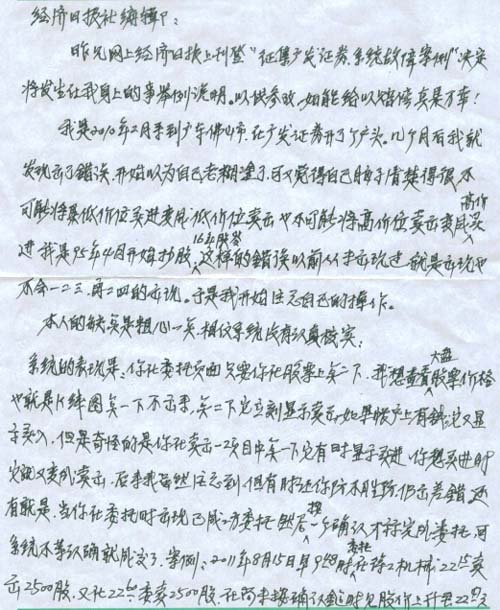 经济日报社编辑:
昨见网上经济日报上刊登"征集广发证券系统故障案例"决定
将发生在我身上的事举例说明。以供参考,如能给以赔偿真是万幸!
我是2010年2月来到广东佛山市,在广发证券开了个户头。几个月后我就
发现出了错误,开始以为自己老糊涂了,可又觉得自己脑子清楚得很,不
可能将最低价位买进变成低价位卖出也不可能将高价位卖出变成高价买
进我是95年4月开始炒股16年股龄这样的错误以前从未出现过就是出现也
不会一二三,再二四的出现。于是我开始注意自己的操作。
本人的缺点是粗心一点相信系统没有认真核实;
系统的表现是:你在委托页面只要你在股票上点一下,我想查看大盘股票价格
也就是K线图点一下不出来,点二下它立刻显示卖出如果帐户上有钱它又显
示买入,但是奇怪的是你在卖出一项目中点一下它有时显示买进你想买进时
它又变成卖出。后来我虽然注意到但有时还你防不胜防仍出差错还
有就是,当你在委托时出现已成功委托然后按一个确认才算完成委托,可
系统不等认确就成交了,案例:2011年8月15日早9:58时委托在徐工机械:22.15卖
出2500股,又在22.委卖2500股,在尚未按确认的时候见股价上升至22.3